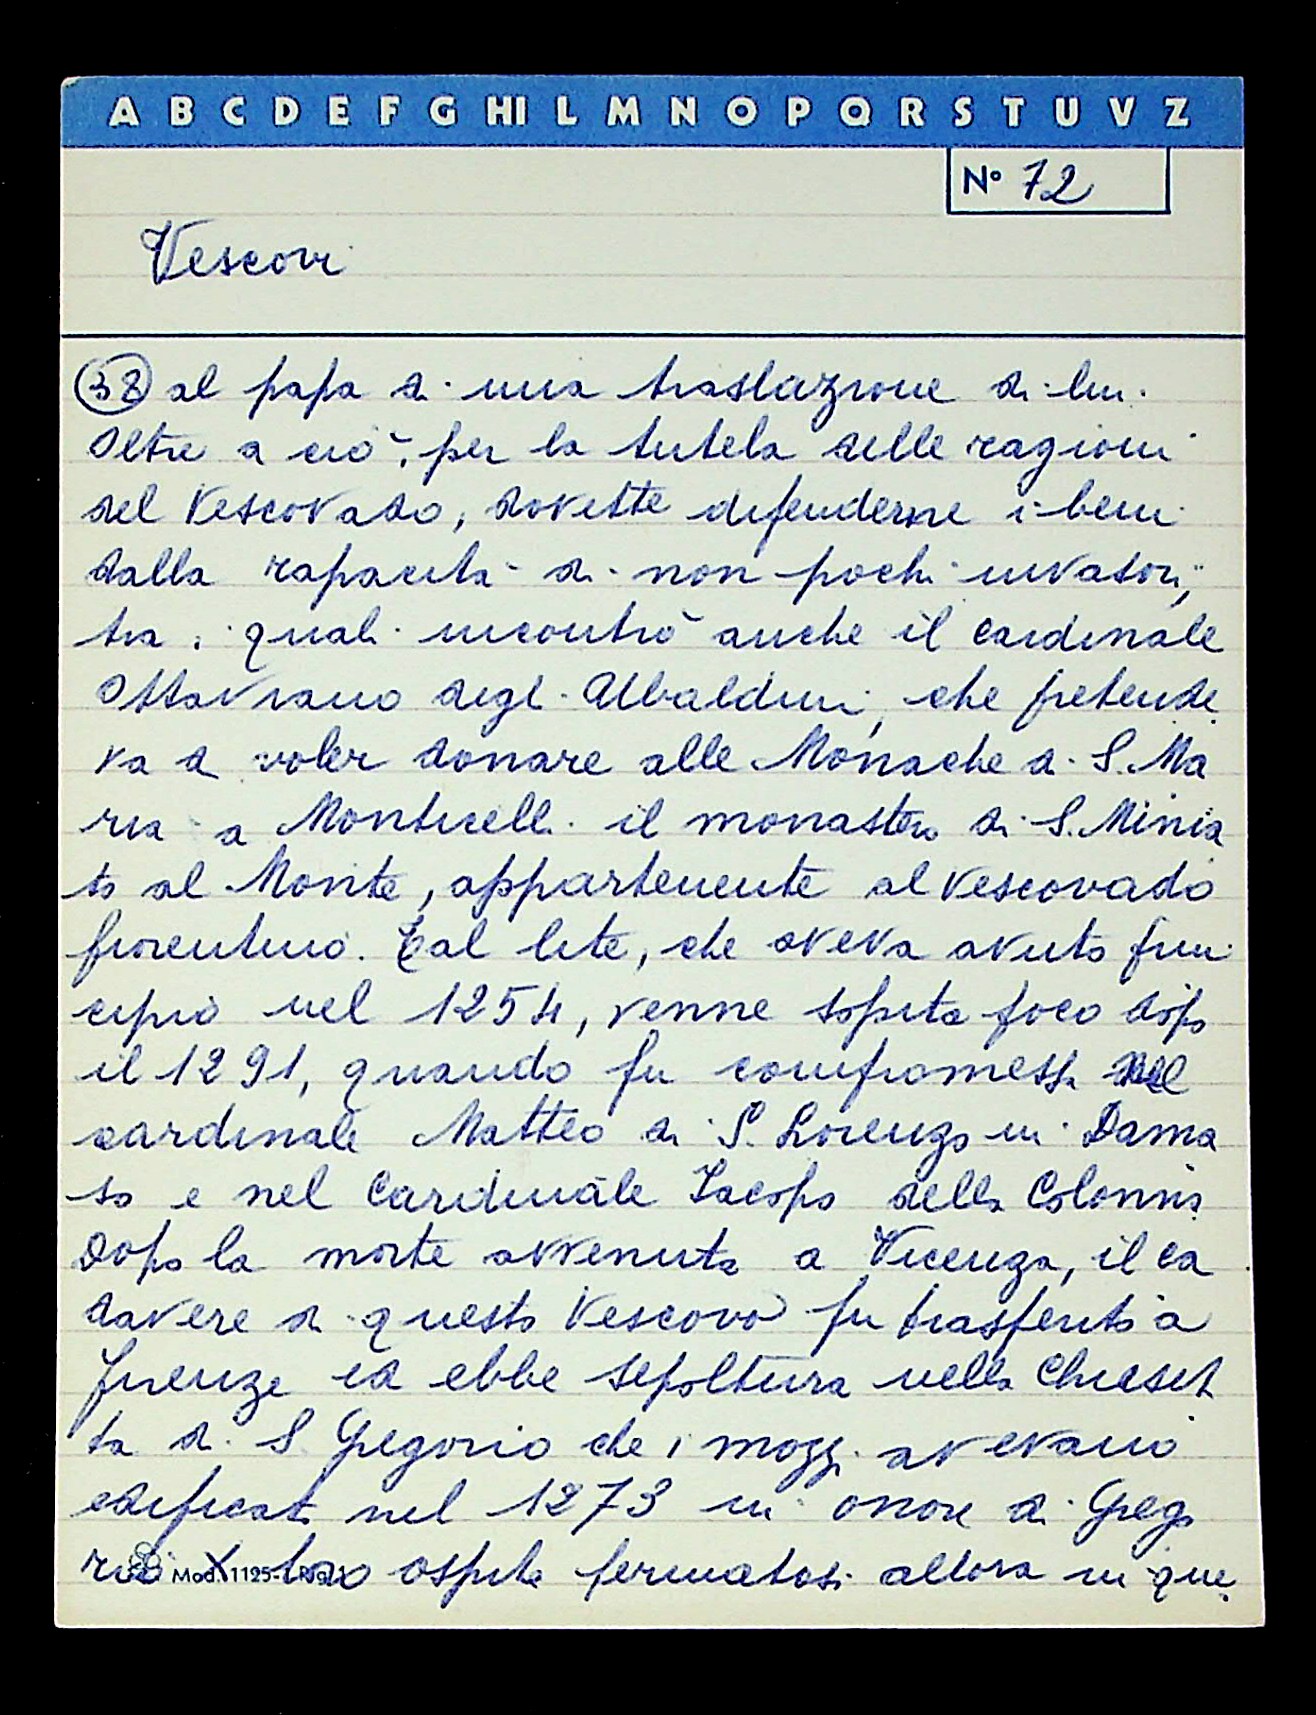 A B C D E F G H I L M N O P Q R S T U V Z
N° 72
Vescovi
38 al papa di una traslazione di lui.
Oltre a ciò, per la tutela delle ragioni
del Vescovado, dovette difenderne i beni
dalla rapacità di non pochi invasori,
tra i quali incontrò anche il cardinale
Ottaviano degli Ubaldini, che pretende
va di voler donare alle Monache di S. Ma
ria a Monticelli il monastero di S. Minia
to al Monte, appartenente al Vescovado
fiorentino. Tal lite, che aveva avuto prin
cipio nel 1254, venne sopita poco dopo
il 1291, quando fu compromessa nel
cardinale Matteo di S. Lorenzo in Dama
so e nel Cardinale Iacopo della Colonna
Dopo la morte avvenuta a Vicenza, il ca
davere di questo Vescovo fu trasferito a
Firenze ed ebbe sepoltura nella Chieset
ta di S Gregorio che i mozzi avevano
edificata nel 1273 in onore di Grego
rio X loro ospite fermatosi allora in que
Mod. 1125-1 Rig. 1